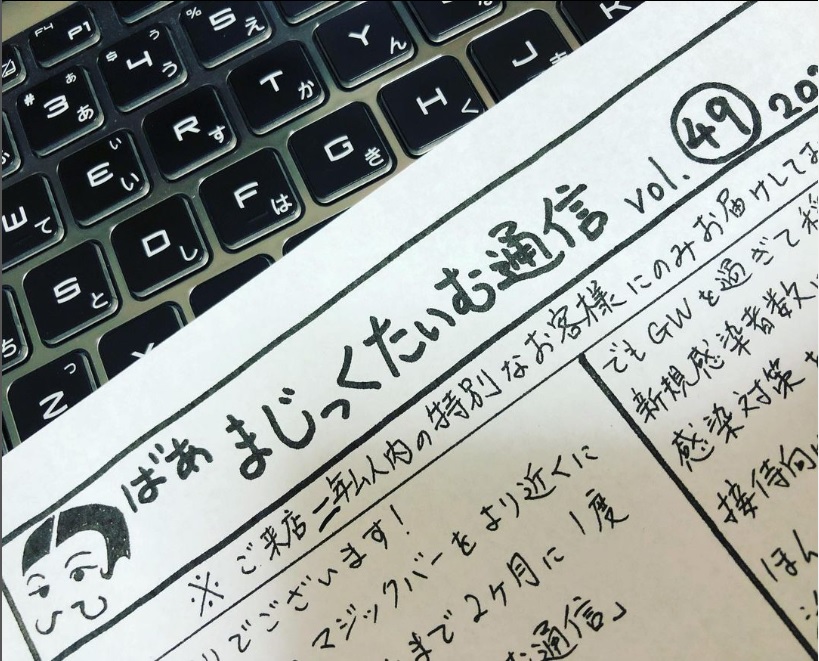 F4 P1
# 3 ぁ あ
$ 4 ぅ う
% 5 ぇ え
W て
E ぃ い
R す
T か
Y ん
S と
D し
F は
G き
H く
J
K
Z っ つ
ばぁ まじっくたいむ通信 vol. 49
※ ご来店二年以内の特別なお客様にのみお届けして
りでございます!
マジックバーをより近くに
まで2ヶ月に1度
通信」
でもGWを過ぎて
新規感染者数
感染対策
接待
ほん